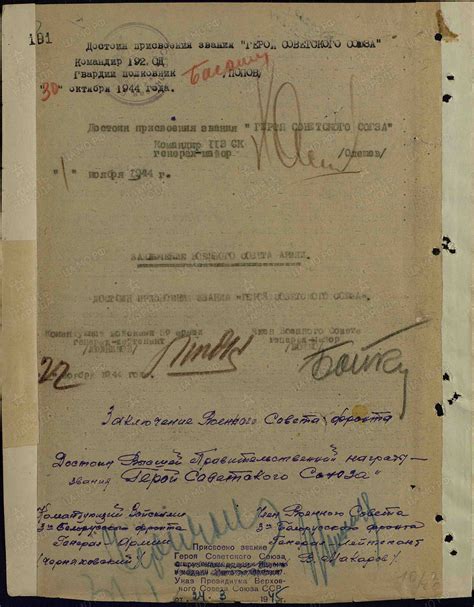 191
Достоин присвоения звания "ГЕРОЙ СОВЕТСКОГО СОЮЗА"
Командир 192 СД
Гвардии полковник /ПОПОВ/
"30" октября 1944 года.
Достоин присвоения звания "ГЕРОЯ СОВЕТСКОГО СОЮЗА"
Командир 113 СК
генерал-майор /Олешев/
"1" ноября 1944 г.
ЗАКЛЮЧЕНИЕ ВОЕННОГО СОВЕТА АРМИИ.
ДОСТОИН ПРИСВОЕНИЯ ЗВАНИЯ "ГЕРОЙ СОВЕТСКОГО СОЮЗА".
Командующий войсками 39 армии
Член Военного Совета
генерал-лейтенант
генерал-майор
/ЛЮДНИКОВ/
/БОЙКО/
22 ноября 1944 г.
Бойко
Заключение Военного Совета фронта
Достоин Высшей Правительственной награды —
звания "Герой Советского Союза"
Командующий Войсками
Член Военного Совета
3го Белорусского фронта
3го Белорусского фронта
Генерал Армии
Генерал Лейтенант
(Черняховский)
(В. Макаров)
Присвоено звание
Героя Советского Союза,
Указ Президиума Верхов-
ного Совета Союза ССР
от 24.3 1945